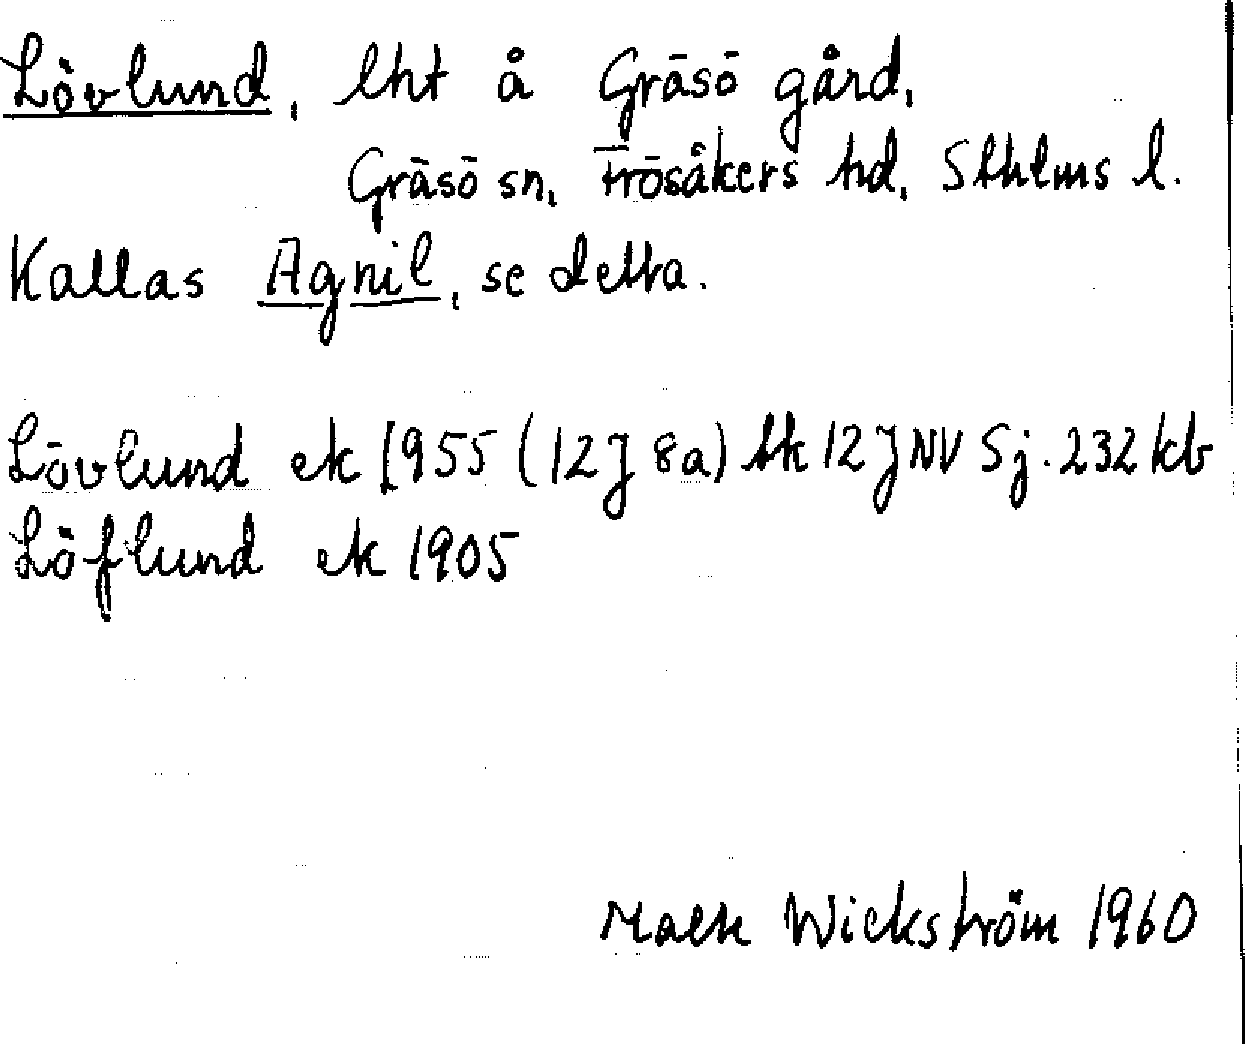 Lövlund, lht å Gräsö gård,
Gräsö sn, Frösåkers hd, Sthlms l.
Kallas Agnil, se detta.
Lövlund ek 1955 (12J 8a) tk 12J NV Sj. 232 kb
Löflund ek 1905
Wickström 1960